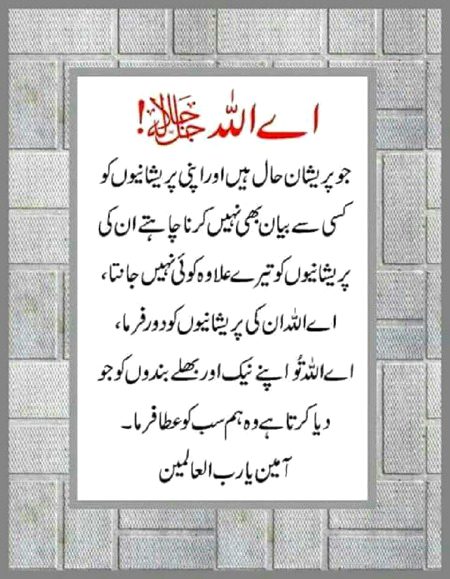 اے اللہ جل جلالہ!
جو پریشان حال ہیں اور اپنی پریشانیوں کو
کسی سے بیان بھی نہیں کرنا چاہتے ان کی
پریشانیوں کو تیرے علاوہ کوئی نہیں جانتا،
اے اللہ ان کی پریشانیوں کو دور فرما،
اے اللہ تُو اپنے نیک اور بھلے بندوں کو جو
دیا کرتا ہے وہ ہم سب کو عطا فرما۔
آمین یا رب العالمین